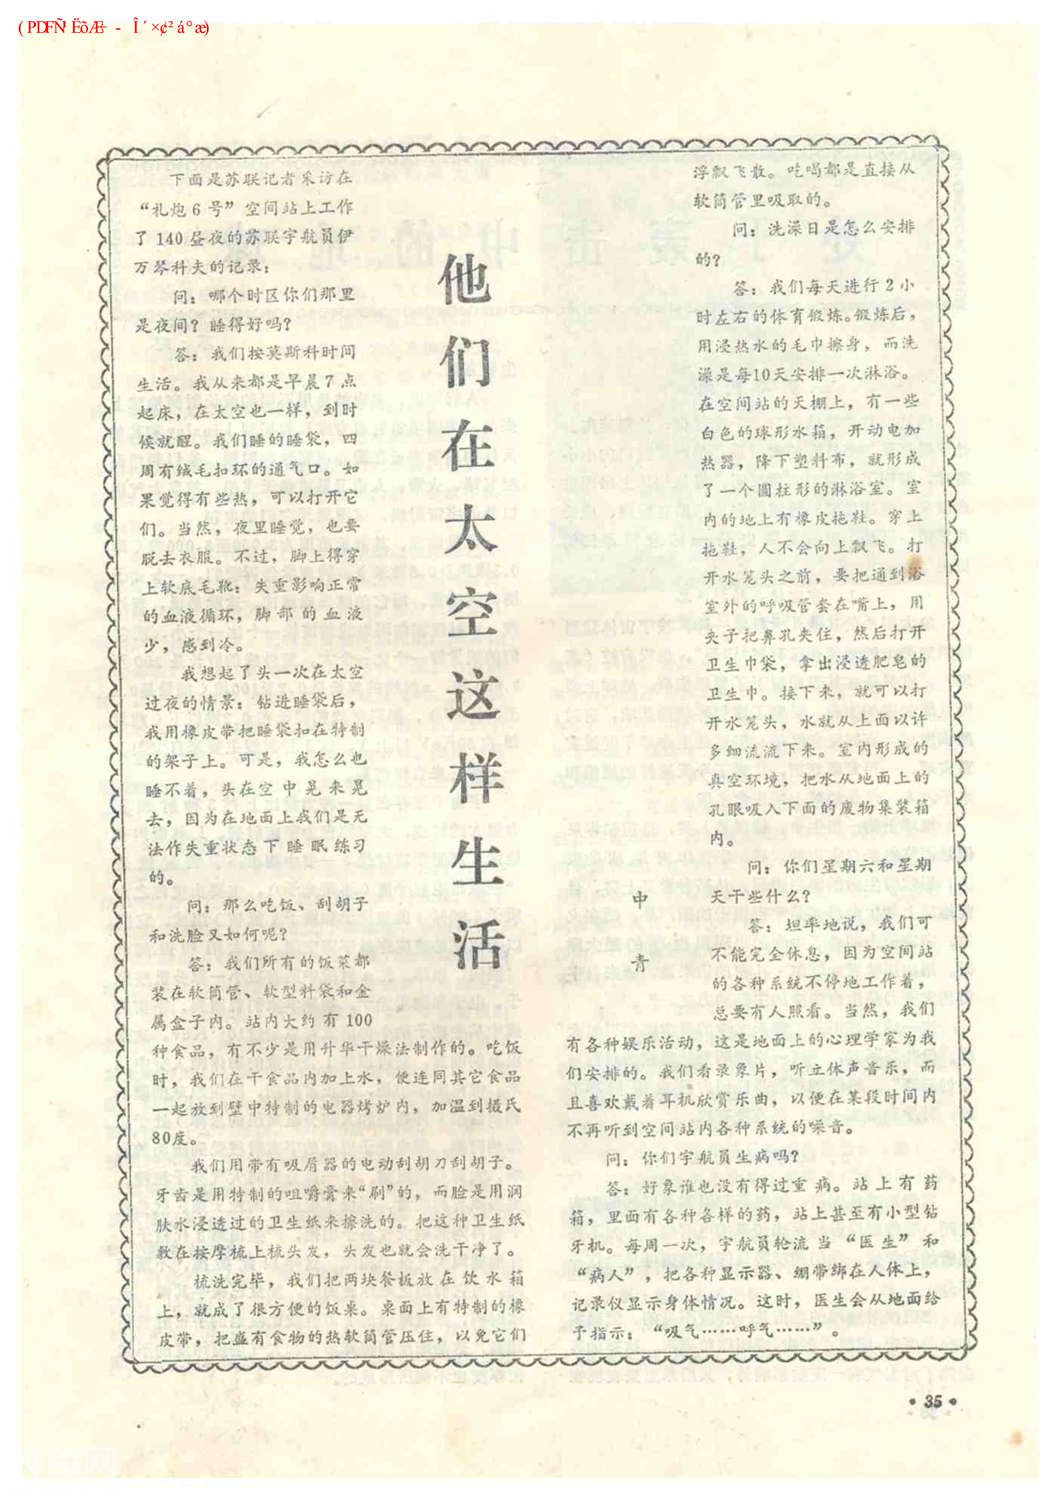 他们在太空这样生活
中青
下面是苏联记者采访在
“礼炮6号”空间站上工作
了140昼夜的苏联宇航员伊
万琴科夫的记录：
问：哪个时区你们那里
是夜间？睡得好吗？
答：我们按莫斯科时间
生活。我从来都是早晨7点
起床，在太空也一样，到时
候就醒。我们睡的睡袋，四
周有绒毛扣环的通气口。如
果觉得有些热，可以打开它
们。当然，夜里睡觉，也要
脱去衣服。不过，脚上得穿
上软底毛靴：失重影响正常
的血液循环，脚部的血液
少，感到冷。
我想起了头一次在太空
过夜的情景：钻进睡袋后，
我用橡皮带把睡袋扣在特制
的架子上。可是，我怎么也
睡不着，头在空中晃来晃
去，因为在地面上我们是无
法作失重状态下睡眠练习
的。
问：那么吃饭、刮胡子
和洗脸又如何呢？
答：我们所有的饭菜都
装在软筒管、软型料袋和金
属盒子内。站内大约有100
种食品，有不少是用升华干燥法制作的。吃饭
时，我们在干食品内加上水，便连同其它食品
一起放到壁中特制的电器烤炉内，加温到摄氏
80度。
我们用带有吸屑器的电动刮胡刀刮胡子。
牙齿是用特制的咀嚼膏来“刷”的，而脸是用润
肤水浸透过的卫生纸来擦洗的。把这种卫生纸
敷在按摩梳上梳头发，头发也就会洗干净了。
梳洗完毕，我们把两块餐板放在饮水箱
上，就成了很方便的饭桌。桌面上有特制的橡
皮带，把盛有食物的热软筒管压住，以免它们
浮飘飞散。吃喝都是直接从
软筒管里吸取的。
问：洗澡日是怎么安排
的？
答：我们每天进行2小
时左右的体育锻炼。锻炼后，
用浸热水的毛巾擦身，而洗
澡是每10天安排一次淋浴。
在空间站的天棚上，有一些
白色的球形水箱，开动电加
热器，降下塑料布，就形成
了一个圆柱形的淋浴室。室
内的地上有橡皮拖鞋。穿上
拖鞋，人不会向上飘飞。打
开水笼头之前，要把通到浴
室外的呼吸管套在嘴上，用
夹子把鼻孔夹住，然后打开
卫生巾袋，拿出浸透肥皂的
卫生巾。接下来，就可以打
开水笼头，水就从上面以许
多细流流下来。室内形成的
真空环境，把水从地面上的
孔眼吸入下面的废物集装箱
内。
问：你们星期六和星期
天干些什么？
答：坦率地说，我们可
不能完全休息，因为空间站
的各种系统不停地工作着，
总要有人照看。当然，我们
有各种娱乐活动，这是地面上的心理学家为我
们安排的。我们看录象片，听立体声音乐，而
且喜欢戴着耳机欣赏乐曲，以便在某段时间内
不再听到空间站内各种系统的噪音。
问：你们宇航员生病吗？
答：好象谁也没有得过重病。站上有药
箱，里面有各种各样的药，站上甚至有小型钻
牙机。每周一次，宇航员轮流当“医生”和
“病人”，把各种显示器、绷带绑在人体上，
记录仪显示身体情况。这时，医生会从地面给
予指示：“吸气……呼气……”。
•35•